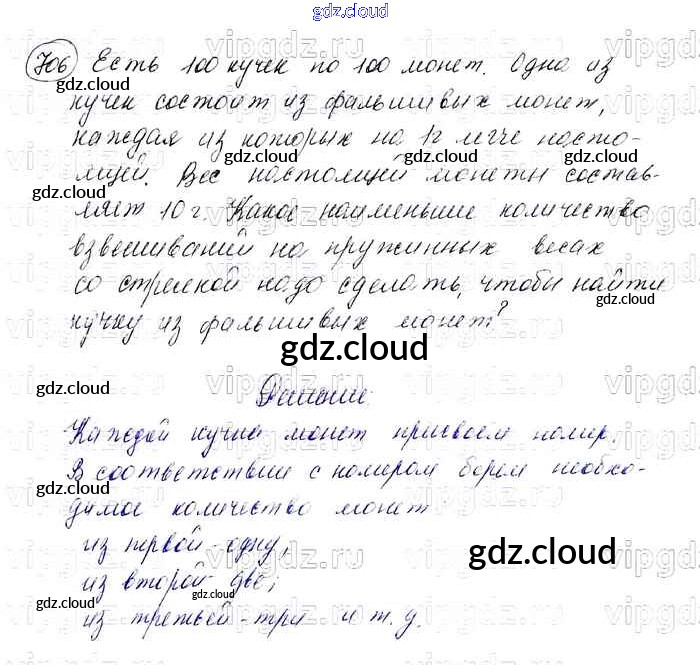 gdz.cloud
706 Есть 100 кучек по 100 монет. Одна из
кучек состоит из фальшивых монет,
каждая из которых на 1г легче насто-
ящей. Вес настоящей монеты состав-
ляет 10 г. Какое наименьшее количество
взвешиваний на пружинных весах
со стрелкой надо сделать, чтобы найти
кучку из фальшивых монет?
gdz.cloud
Решение:
Каждой кучке монет присвоем номер.
В соответствии с номером берем необхо-
димое количество монет
из первой - одну,
из второй - две;
gdz.cloud
из третьей - три и т. д.